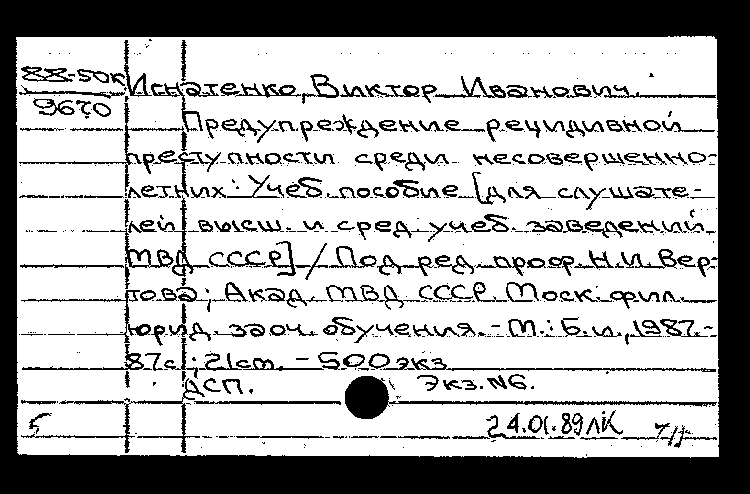 88-50к
9670
Игнатенко, Виктор Иванович.
Предупреждение рецидивной
преступности среди несовершенно-
летних: Учеб. пособие [для слушате-
лей высш. и сред. учеб. заведений
МВД СССР] / Под ред. проф. Н.И. Вер-
това; Акад. МВД СССР. Моск. фил.
юрид. заоч. обучения. - М.: Б.и., 1987. -
87с.; 21cm. - 500 экз
ДСП. Экз. №6.
5 24.01.89 лК